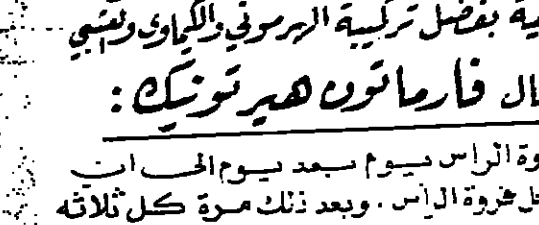 ية بفضل تركيبه الهرموني والكيماوي والعشبي
ال فارماتون هيرتونيك :
وة الراس يوم بعد يوم الى ان
كل فروة الراس . وبعد ذلك مرة كل ثلاثه